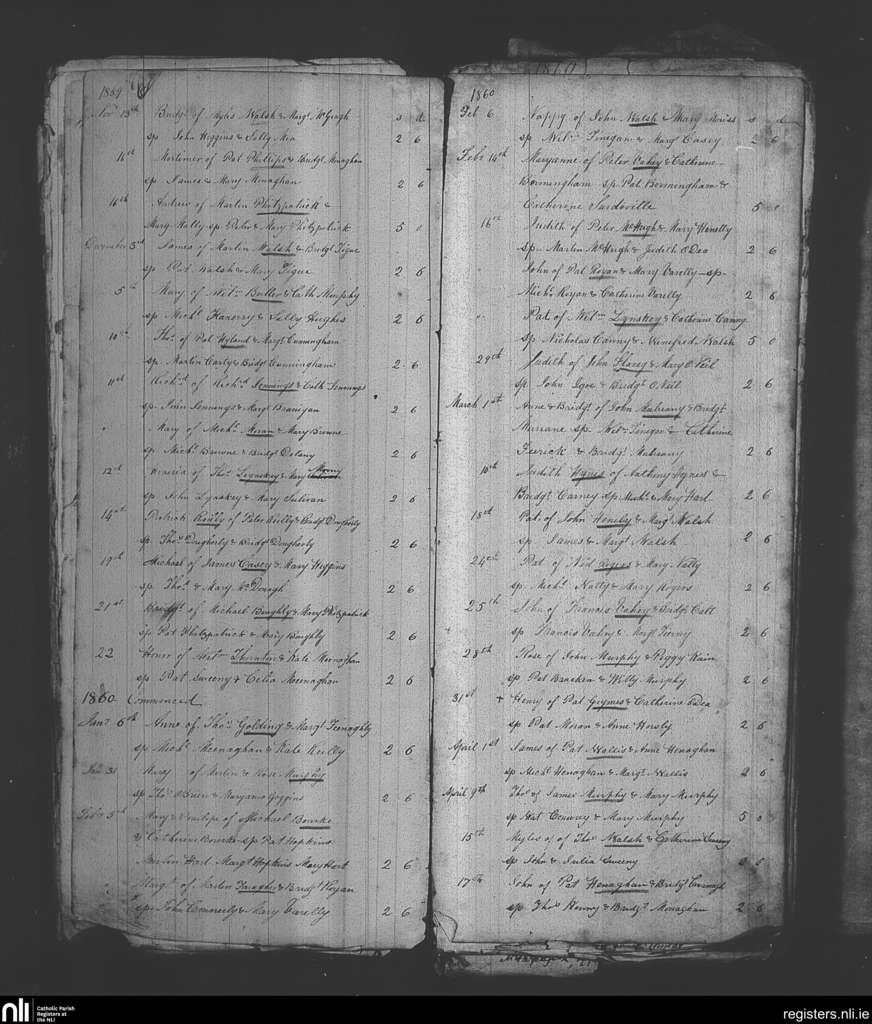 1859
Novr 13th Bridgt of Myles Walsh & Margt McGragh s d
sp John Higgins & Selly 2 6
16th Mortimer of Pat Phillips & Bridgt Monaghan
sp James & Mary Monaghan 2 6
16th Andrew of Martin Phitzpatrick &
Mary Nally sp Peter & Mary Phitzpatrick 5 0
December 3rd James of Martin Walsh & Bridgt Tigue
sp Pat Walsh & Mary Tigue 2 6
5th Mary of Wilm Butler & Cath Murphy
sp Michl & Selly Hughes 2 6
10th Thos of Pat Hyland & Margt Cunningham
sp Martin Carty & Bridgt Cunningham 2 6
11th Richd of Richd Jennings & Cath Jennings
sp John Jennings & Margt Branigan 2 6
" Mary of Michl Moran & Mary Browne
sp Michl Browne & Bridgt Delany 2 6
12th of Thos Lynskey & Mary
sp John Lynskey & Mary Sulivan 2 6
14th Patrick Reilly of Peter Reilly & Bridgt Dougherty
sp Thos Dougherty & Bridgt Dougherty 2 6
19th Michael of James Casey & Mary Higgins
sp Thos & Mary Mc Donogh 2 6
21st Bridgt of Michael Boughly & Mary Phitzpatrick
sp Pat Phitzpatrick & Mary Boughly 2 6
22 Honor of Wilm Thornton & Kate Meenaghan
sp Pat Sweeny & Celia Meenaghan 2 6
1860 Commenced
Jany 6th Anne of Thos Golding & Margt Feenaghty
sp Michl Meenaghan & Kate Reilly 2 6
Jan 31 Mary of Martin & Rose Murphy
sp Thos OBrien & Maryanne Goggins 2 6
Feby 5th Mary & Penelope of Michael Bourke
& Catherine Bourke sp Pat Hopkins
Martin Hart Margt Hopkins Mary Hart 2 6
" Margt of Martin & Bridgt Royan
sp John Conneely & Mary Varelly 2 6
1860
Feb 6 Nappy of John Walsh & Mary s d
sp Wilm Finegan & Margt Casey 2 6
Feby 14th Maryanne of Peter Vahey & Catherine
Bermingham sp Pat Bermingham &
Catherine Surdeville 5 0
16th Judith of Peter McHugh & Mary Henelly
sp Martin McHugh & Judith O Dea 2 6
" John of Pat Royan & Mary Varelly sp
Michl Royan & Catherine Varelly 2 6
" Pat of Wilm Lynskey & Catherine Canny
sp Nicholas Canny & Winefred Walsh 5 0
29th Judith of John & Mary O Neil
sp John Igoe & Bridgt O Neil 2 6
March 1st Anne & Bridgt of John Mulreany & Bridgt
Murrane sp Wilm Finegan & Catherine
Feerick & Bridgt Mulreany 2 6
10th Judith Hynes of Anthony Hynes &
Bridgt Carney sp Michl & Mary Hart 2 6
18th Pat of John Henely & Margt Walsh
sp James & Margt Walsh 2 6
24th Pat of Ned Rogers & Mary Natty
sp Michl Natty & Mary Rogers 2 6
25th John of Francis Vahey & Bridgt Catt
sp Francis Vahey & Margt Feeny 2 6
28th Rose of John Murphy & Peggy Kain
sp Pat Brackan & Willy Murphy 2 6
31st + Henry of Pat Grymes & Catherine Odea
sp Pat Moran & Anne Horsly 2 6
April 1st James of Pat Wallis & Anne Henaghan
sp Michl Henaghan & Margt Wallis 2 6
April 9th Thos of James Murphy & Mary Murphy
sp Pat Conway & Mary Murphy 5 0
15th Myles of of Thos Walsh & Catherine Sweeny
sp John & Julia Sweeny 0 0
17th John of Pat Henaghan & Bridgt Cavanagh
sp Thos Henry & Bridgt Monaghan 2 6
nli Catholic Parish
Registers at
the NLI
registers.nli.ie